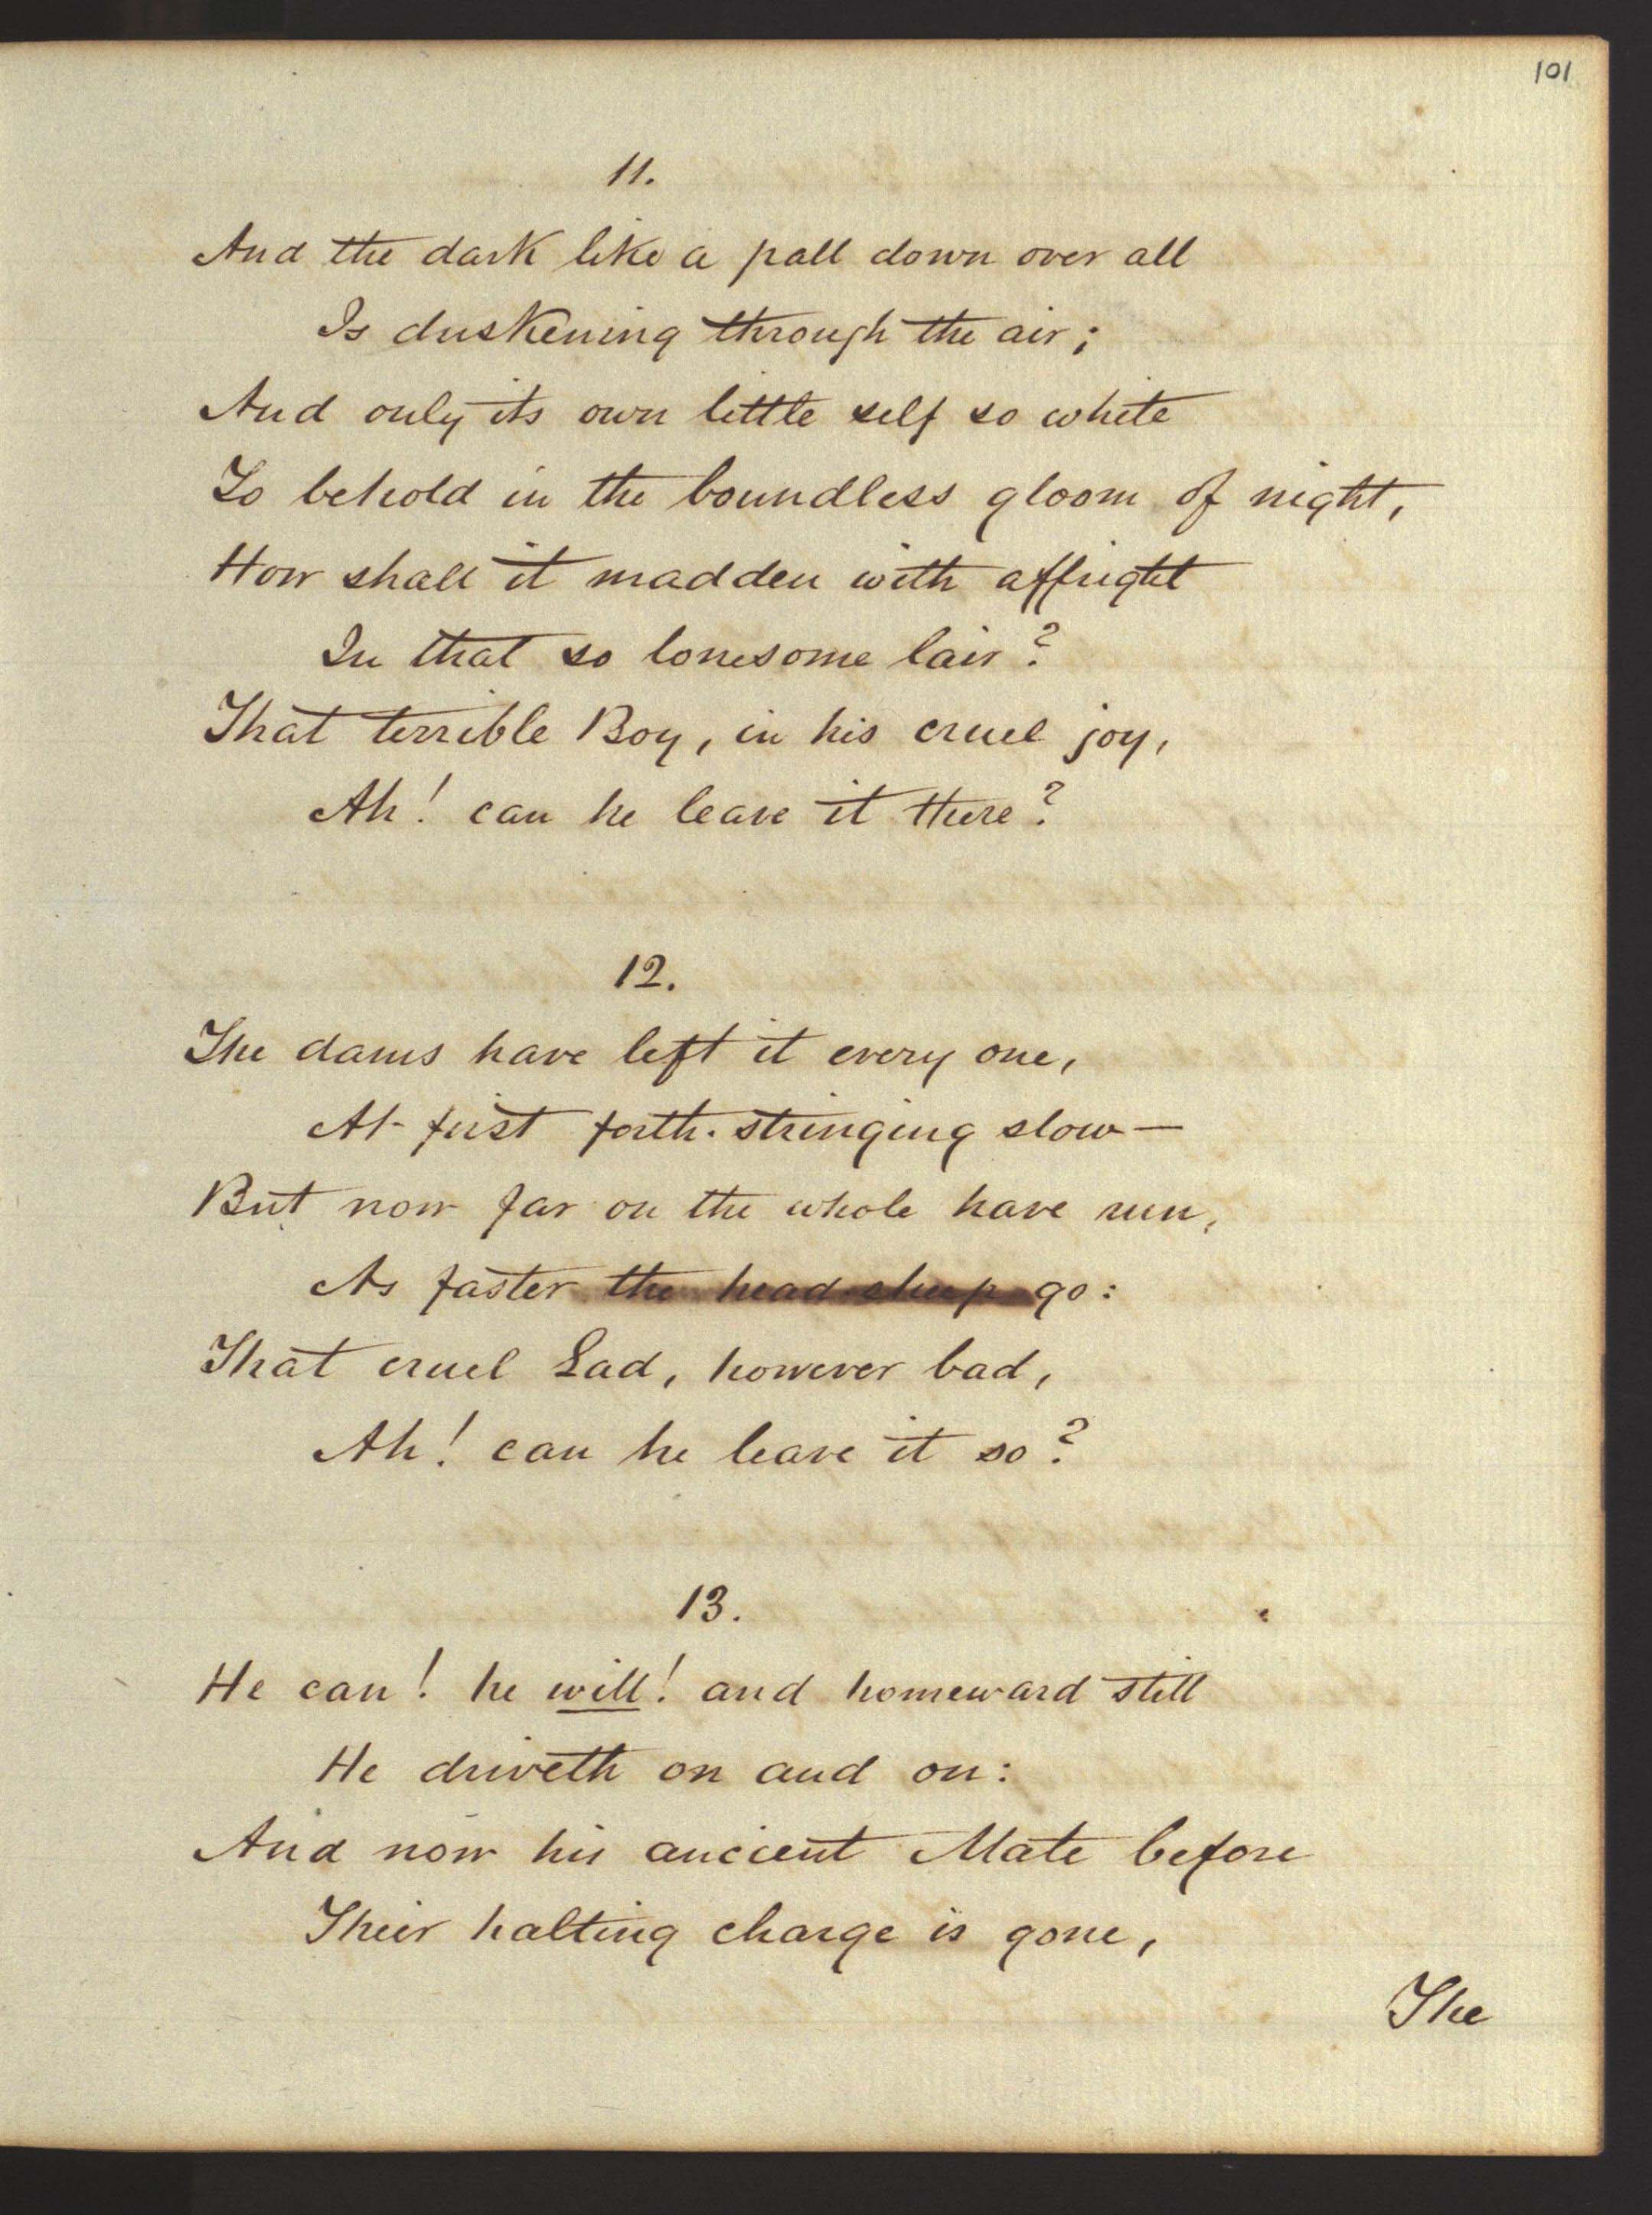 101
11.
And the dark like a pall down over all
Is duskening through the air;
And only its own little self so white
To behold in the boundless gloom of night,
How shall it madden with affright
In that so lonesome lair?
That terrible Boy, in his cruel joy,
Ah! can he leave it there?
12.
The dams have left it every one,
At first forth-stringing slow—
But now far on the whole have run,
As faster the head-sheep go:
That cruel Lad, however bad,
Ah! can he leave it so?
13.
He can! he will! and homeward still
He driveth on and on:
And now his ancient Mate before
Their halting charge is gone,
The